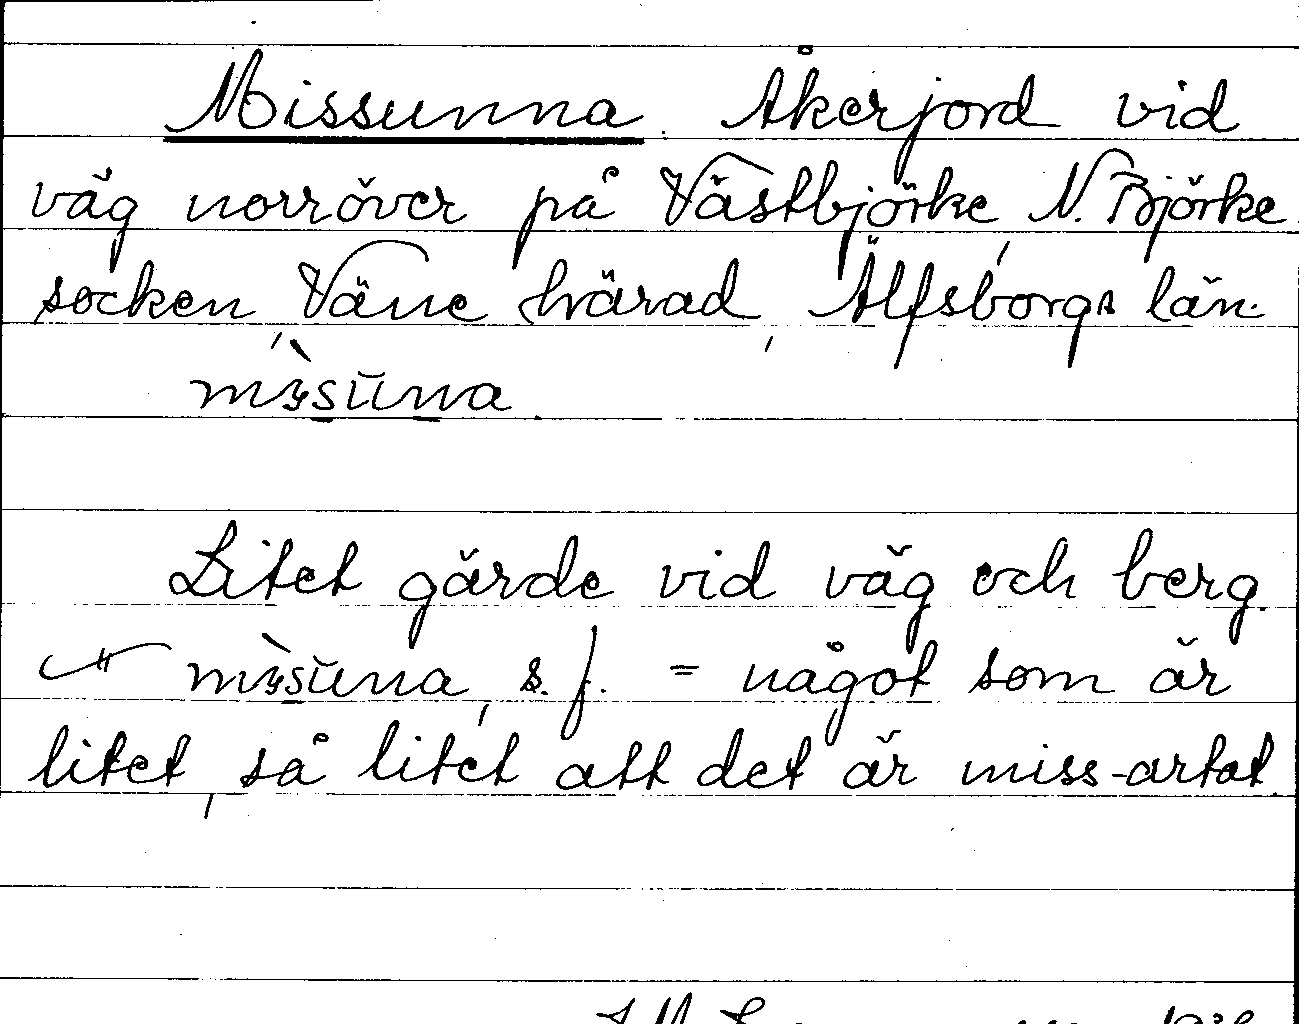 Missunna. Åkerjord vid
väg norröver på Västbjörke, N. Björke
socken, Väne härad, Älfsborgs län.
Litet gärde vid väg och berg.
s. f. = något som är
litet, så litet att det är miss-artat.